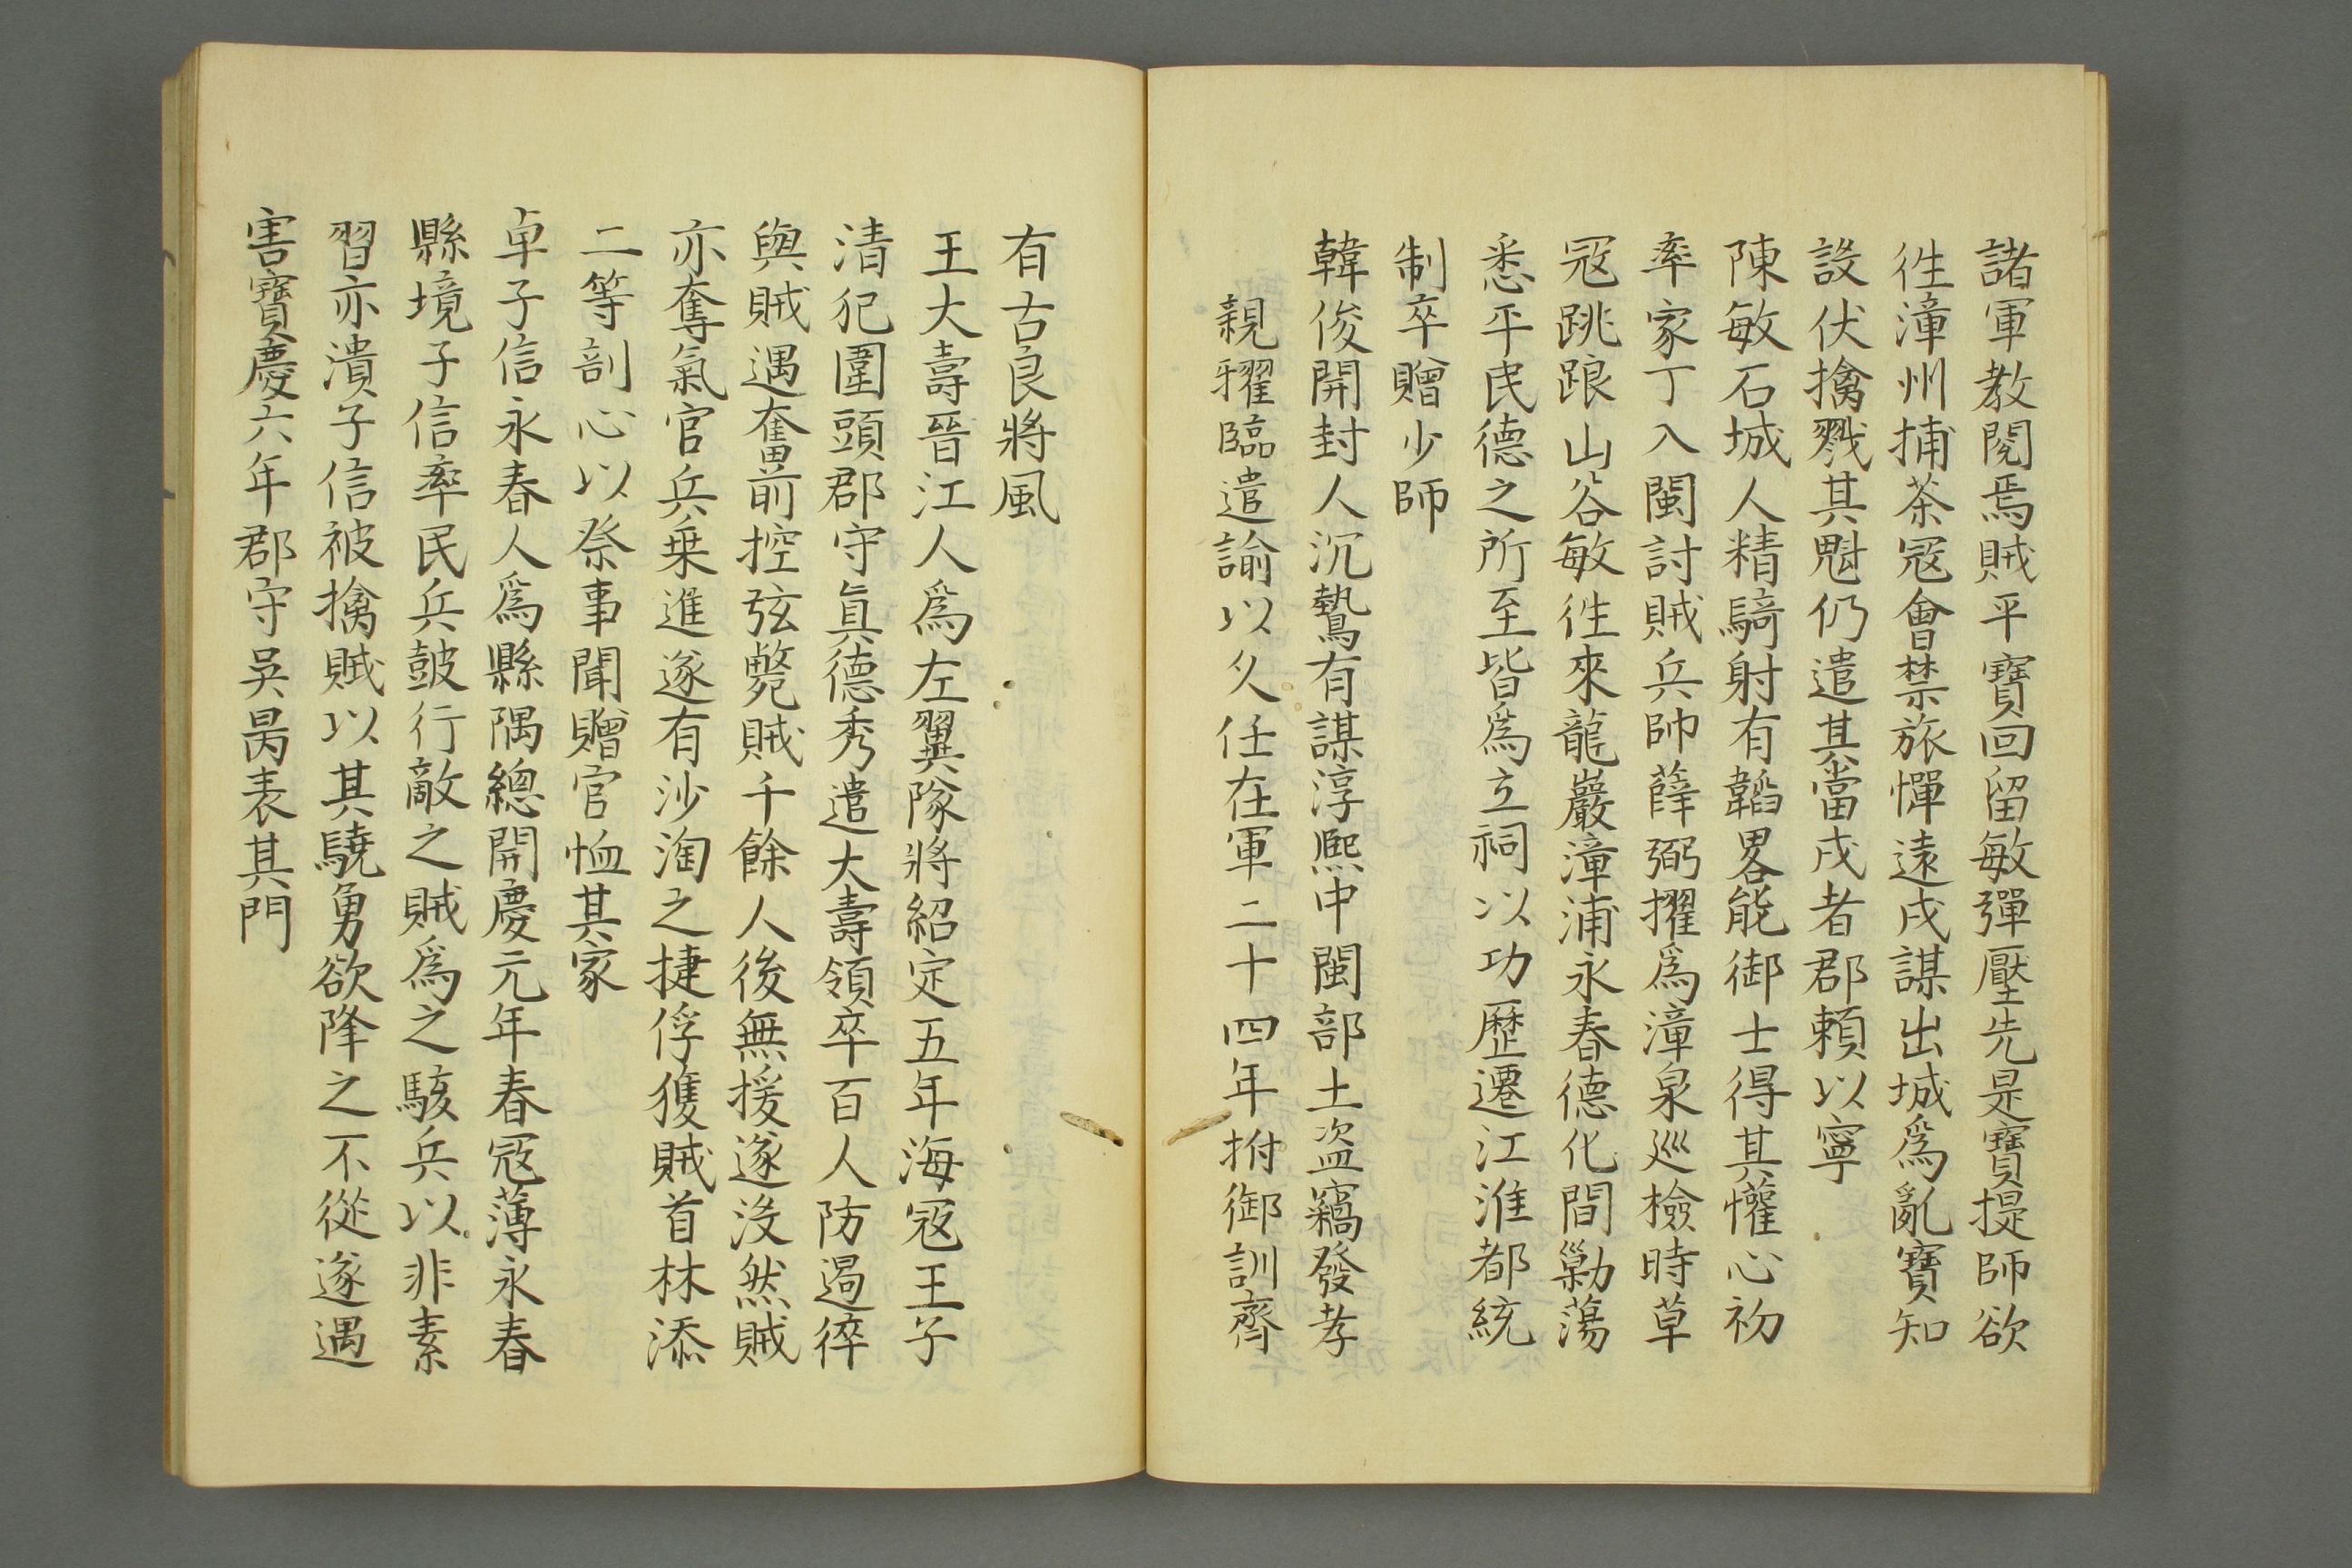 諸軍教閱焉賊平寶回留敏彈壓先是寶提師欲
徃漳州捕茶冦會禁旅憚遠戍謀出城爲亂寶知
設伏擒戮其魁仍遣其當戍者郡頼以寧
陳敏石城人精騎射有韜畧能御士得其懽心初
率家丁入閩討賊兵帥薛弼擢爲漳泉巡檢時草
冦跳踉山谷敏徃來龍巖漳浦永春德化間勦蕩
悉平民德之所至皆爲立祠以功歷遷江淮都統
制卒贈少師
韓俊開封人沉鷙有謀淳熙中閩部土盜竊發孝
親擢臨遣諭以久任在軍二十四年拊御訓齊
有古良將風
王大壽晉江人爲左翼隊將紹定五年海冦王子
清犯圍頭郡守眞德秀遣大壽領卒百人防遏猝
與賊遇奮前控弦斃賊千餘人後無援遂没然賊
亦奪氣官兵乗進遂有沙淘之捷俘獲賊首林添
二等剖心以祭事聞贈官恤其家
卓子信永春人爲縣隅總開慶元年春冦薄永春
縣境子信率民兵鼓行敵之賊爲之駭兵以非素
習亦潰子信被擒賊以其驍勇欲降之不從遂遇
害寶慶六年郡守吳昺表其門